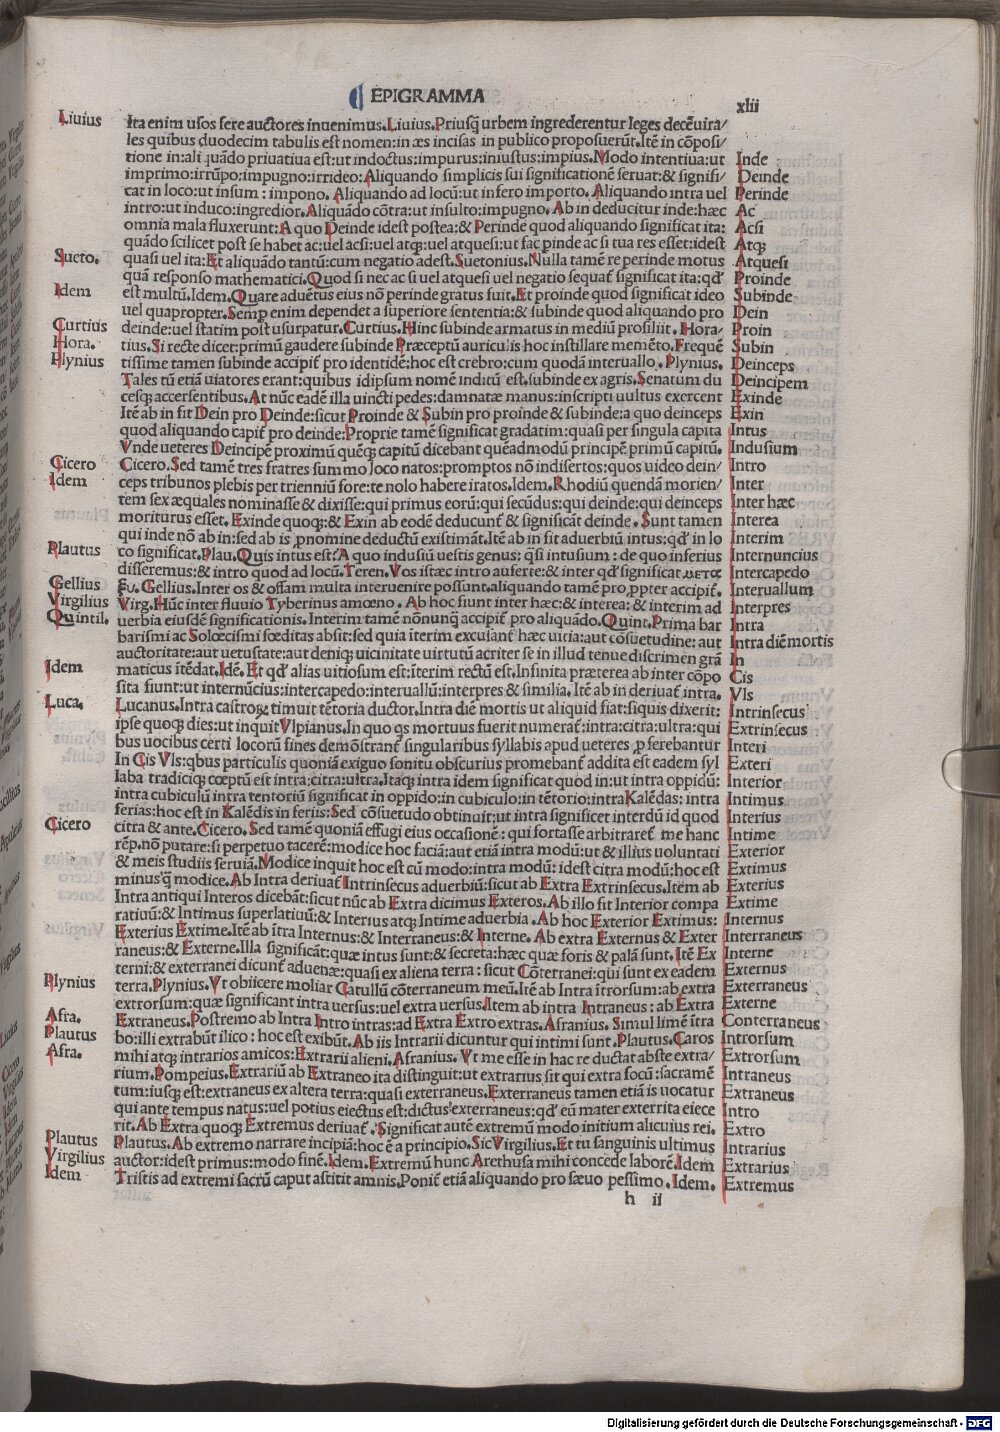 EPIGRAMMA
xlii
Liuius
Ita enim usos fere auctores inuenimus. Liuius. Priusq̃ urbem ingrederentur leges decẽuira/
les quibus duodecim tabulis est nomen: in æs incisas in publico proposuerũt. Itẽ in cõposi/
tione in: aliquãdo priuatiua est: ut indoctus: impurus: iniustus: impius. Modo intentiua: ut
imprimo: irrũpo: impugno: irrideo: Aliquando simplicis sui significationẽ seruat: & signifi/
cat in loco: ut insum: impono. Aliquando ad locũ: ut infero importo. Aliquando intra uel
intro: ut induco: ingredior. Aliquãdo cõtra: ut insulto: impugno. Ab in deducitur inde: hæc
omnia mala fluxerunt: A quo Deinde idest postea: & Perinde quod aliquando significat ita:
quãdo scilicet post se habet ac: uel acsi: uel atq; uel atquesi: ut fac pinde ac si tua res esset: idest
Sueto.
quasi uel ita: Et aliquãdo tantũ: cum negatio adest. Suetonius. Nulla tamẽ re perinde motus
quã responso mathematici. Quod si nec ac si uel atquesi uel negatio sequat̃ significat ita: qď
Idem
est multũ. Idem. Quare aduẽtus eius nõ perinde gratus fuit. Et proinde quod significat ideo
uel quapropter. Semp enim dependet a superiore sententia: & subinde quod aliquando pro
Curtius
deinde: uel statim post usurpatur. Curtius. Hinc subinde armatus in mediũ prosiliit. Hora/
Hora.
tius. Si recte dicet: primũ gaudere subinde Præceptũ auriculis hoc instillare memẽto. Frequẽ
Plynius
tissime tamen subinde accipit̃ pro identidẽ: hoc est crebro: cum quodã interuallo. Plynius.
Tales tũ etiã uiatores erant: quibus idipsum nomẽ inditũ est. subinde ex agris. Senatum du
cesq; accersentibus. At nũc eadẽ illa uincti pedes: damnatæ manus: inscripti uultus exercent
Itẽ ab in fit Dein pro Deinde: sicut Proinde & Subin pro proinde & subinde: a quo deinceps
quod aliquando capit̃ pro deinde: Proprie tamẽ significat gradatim: quasi per singula capita
Vnde ueteres Deincipẽ proximũ quẽq; capitũ dicebant quẽadmodũ principẽ primũ capitũ.
Cicero
Cicero. Sed tamẽ tres fratres summo loco natos: promptos nõ indisertos: quos uideo dein/
Idem
ceps tribunos plebis per trienniũ fore: te nolo habere iratos. Idem. Rhodiũ quendã morien/
tem sex æquales nominasse & dixisse: qui primus eorũ: qui secũdus: qui deinde: qui deinceps
moriturus esset. Exinde quoq; & Exin ab eodẽ deducunt̃ & significãt deinde. Sunt tamen
qui inde nõ ab in: sed ab is pronomine deductũ existimãt. Itẽ ab in fit aduerbiũ intus: qď in lo
Plautus
co significat. Plau. Quis intus est? A quo indusiũ uestis genus: q̃si intusium: de quo inferius
disseremus: & intro quod ad locũ. Teren. Vos istæc intro auferte: & inter qď significat
Gellius
Gellius. Inter os & offam multa interuenire possunt. aliquando tamẽ pro ppter accipit̃.
Virgilius
Virg. Hũc inter fluuio Tyberinus amœno. Ab hoc fiunt inter hæc: & interea: & interim ad
Quintil.
uerbia eiusdẽ significationis. Interim tamẽ nõnunq̃ accipit̃ pro aliquãdo. Quint. Prima bar
barismi ac Solœcismi fœditas absit: sed quia iterim excusant̃ hæc uitia: aut cõsuetudine: aut
auctoritate: aut uetustate: aut deniq; uicinitate uirtutũ acriter se in illud tenue discrimen grã
Idem
maticus itẽdat. Idẽ. Et qď alias uitiosum est: iterim rectũ est. Infinita præterea ab inter cõpo
sita fiunt: ut internũcius: intercapedo: interuallũ: interpres & similia. Itẽ ab in deriuat̃ intra.
Luca.
Lucanus. Intra castroꝝ timuit tẽtoria ductor. Intra diẽ mortis ut aliquid fiat: siquis dixerit:
ipse quoq; dies: ut inquit Vlpianus. In quo qs mortuus fuerit numerat̃: intra: citra: ultra: qui
bus uocibus certi locorũ fines demõstrant̃ singularibus syllabis apud ueteres pserebantur
In Cis Vls: qbus particulis quoniã exiguo sonitu obscurius promebant̃ addita est eadem syl
laba tradiciq; cœptũ est intra: citra: ultra. Itaq; intra idem significat quod in: ut intra oppidũ:
intra cubiculũ intra tentoriũ significat in oppido: in cubiculo: in tẽtorio: intra Kalẽdas: intra
ferias: hoc est in Kalẽdis in feriis: Sed cõsuetudo obtinuit: ut intra significet interdũ id quod
Cicero
citra & ante. Cicero. Sed tamẽ quoniã effugi eius occasionẽ: qui fortasse arbitraret̃ me hanc
rẽp. nõ putare: si perpetuo tacerẽ: modice hoc faciã: aut etiã intra modũ: ut & illius uoluntati
& meis studiis seruiã. Modice inquit hoc est cũ modo: intra modũ: idest citra modũ: hoc est
minus q̃ modice. Ab Intra deriuat̃ Intrinsecus aduerbiũ: sicut ab Extra Extrinsecus. Itẽm ab
Intra antiqui Interos dicebãt: sicut nũc ab Extra dicimus Exteros. Ab illo fit Interior compa
ratiuũ: & Intimus superlatiuũ: & Interius atq; Intime aduerbia. Ab hoc Exterior Extimus:
Exterius Extime. Itẽ ab ĩtra Internus: & Interraneus: & Interne. Ab extra Externus & Exter
raneus: & Externe. Illa significãt: quæ intus sunt: & secreta: hæc quæ foris & palã sunt. Itẽ Ex
terni: & exterranei dicunt̃ aduenæ: quasi ex aliena terra: sicut Cõterranei: qui sunt ex eadem
Plynius
terra. Plynius. Vt obiicere moliar Catullũ cõterraneum meũ. Itẽ ab Intra ĩtrorsum: ab extra
extrorsum: quæ significant intra uersus: uel extra uersus. Item ab intra Intraneus: ab Extra
Afra.
Extraneus. Postremo ab Intra Intro intras: ad Extra Extro extras. Afranius. Simul limẽ ĩtra
Plautus
bo: illi extrabũt ilico: hoc est exibũt. Ab iis Intrarii dicuntur qui intimi sunt. Plautus. Caros
Afra.
mihi atq; intrarios amicos: Extrarii alieni. Afranius. Vt me esse in hac re ductat abste extra/
rium. Pompeius. Extrariũ ab Extraneo ita distinguit: ut extrarius sit qui extra focũ: sacramẽ
tum: iusq; est: extraneus ex altera terra: quasi exterraneus. Exterraneus tamen etiã is uocatur
qui ante tempus natus: uel potius eiectus est: dictus exterraneus: qď eũ mater exterrita eiece
rit. Ab Extra quoq; Extremus deriuat̃. Significat autẽ extremũ modo initium alicuius rei.
Plautus
Plautus. Ab extremo narrare incipiã: hoc ẽ a principio. Sic Virgilius. Et tu sanguinis ultimus
Virgilius
auctor: idest primus: modo finẽ. Idem. Extremũ hunc Arethusa mihi concede laborẽ. Idem
Idem
Tristis ad extremi sacrũ caput astitit amnis. Ponit̃ etiã aliquando pro sæuo pessimo. Idem.
h ii
Inde
Deinde
Perinde
Ac
Acsi
Atq;
Atquesi
Proinde
Subinde
Dein
Proin
Subin
Deinceps
Deincipem
Exinde
Exin
Intus
Indusium
Intro
Inter
Inter hæc
Interea
Interim
Internuncius
Intercapedo
Interuallum
Interpres
Intra
Intra diẽ mortis
In
Cis
Vls
Intrinsecus
Extrinsecus
Interi
Exteri
Interior
Intimus
Interius
Intime
Exterior
Extimus
Exterius
Extime
Internus
Interraneus
Interne
Externus
Exterraneus
Externe
Conterraneus
Introrsum
Extrorsum
Intraneus
Extraneus
Intro
Extro
Intrarius
Extrarius
Extremus
Digitalisierung gefördert durch die Deutsche Forschungsgemeinschaft - DFG